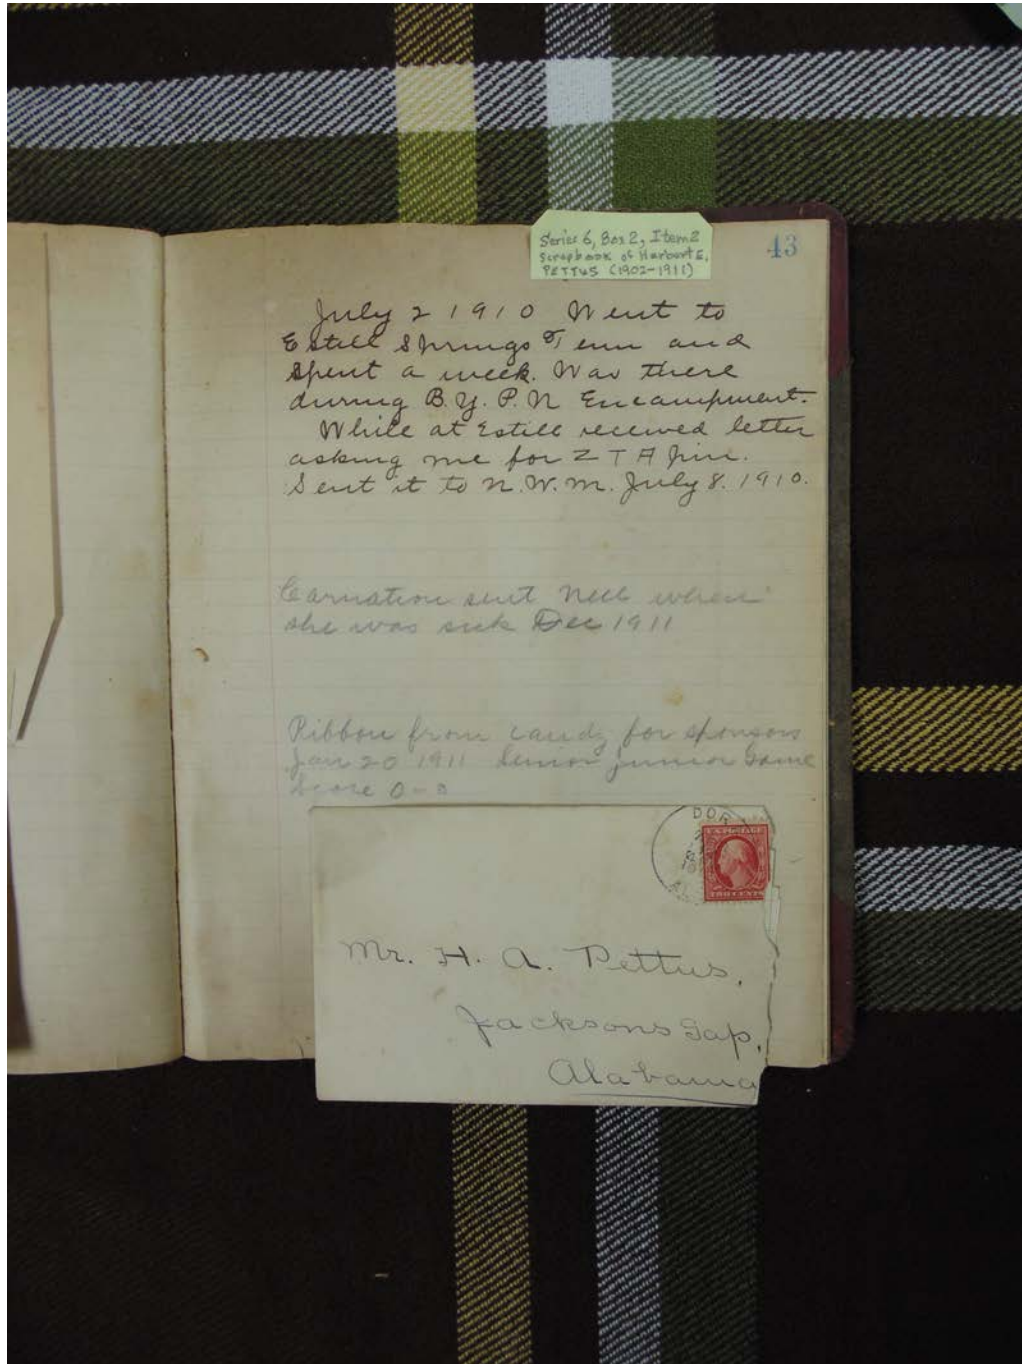 Series 6, Box 2, Item 2
Scrapbook of Harbert E.
PETTUS (1902-1911)
43
July 2 1910 Went to
Estill Springs Tenn and
spent a week. Was there
during B.Y.P.U Encampment.
While at Estill received letter
asking me for Z T A pin.
Sent it to N.W.M. July 8. 1910.
Carnation sent Nell when
she was sick Dec 1911
Ribbon from candy for sponsors
Jan 20 1911 Senior Junior Game
Score 0-0
DOR
U.S. POSTAGE
TWO CENTS
Mr. H. A. Pettus,
Jacksons Gap,
Alabama